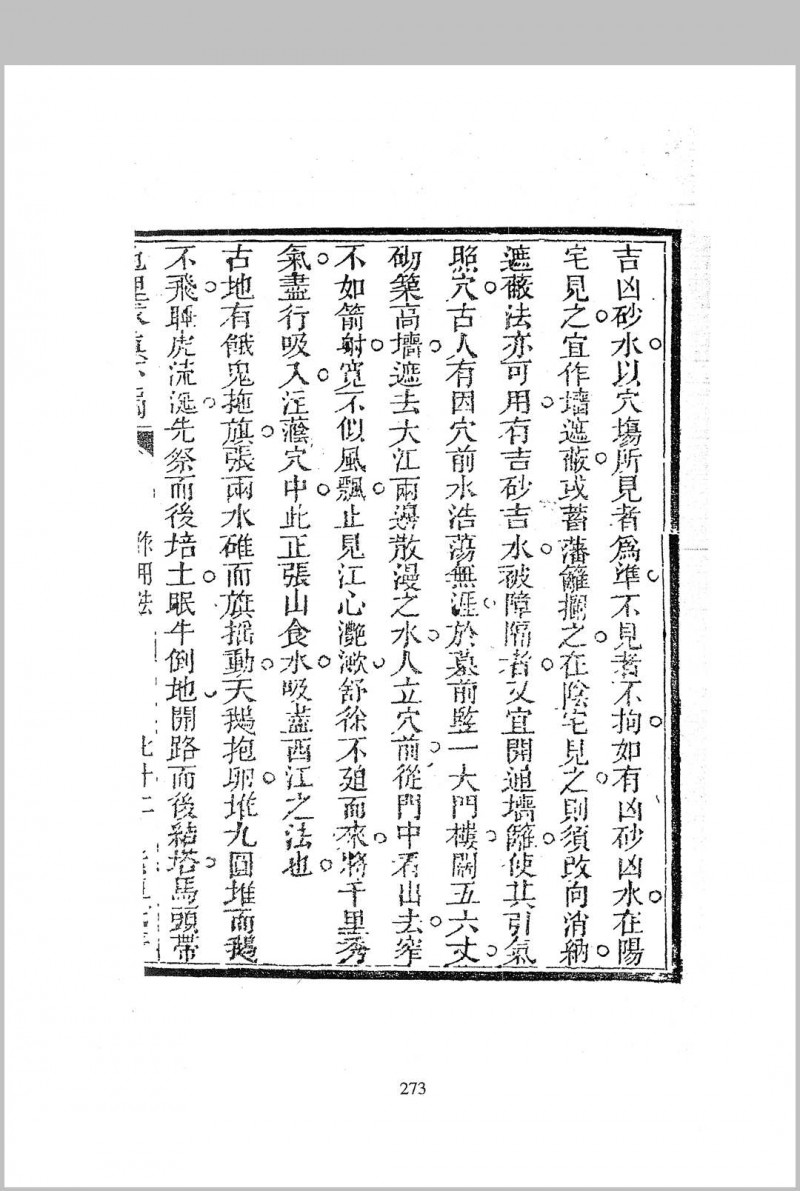 吉凶砂水以穴塲所見者爲準不見者不拘如有凶砂凶水在陽
宅見之宜作墻遮蔽或蓄藩籬攔之在陰宅見之則須改向消納
遮蔽法亦可用有吉砂吉水被障隔者又宜開通墻籬使其引氣
照穴古人有因穴前水浩蕩無涯於墓前竪一大門樓闊五六丈
砌築高墻遮去大江兩邊散漫之水人立穴前從門中看出去窄
不如箭射寛不似風飄止見江心灔漱舒徐不廹而來將千里秀
氣盡行吸入注蔭穴中此正張山食水吸盡西江之法也
古地有餓鬼拖旗張兩水碓而旗揺動天鵝抱卵堆九圓堆而鵝
不飛睡虎流涎先祭而後培土眠牛倒地開路而後結塔馬頭帶
作用法
273